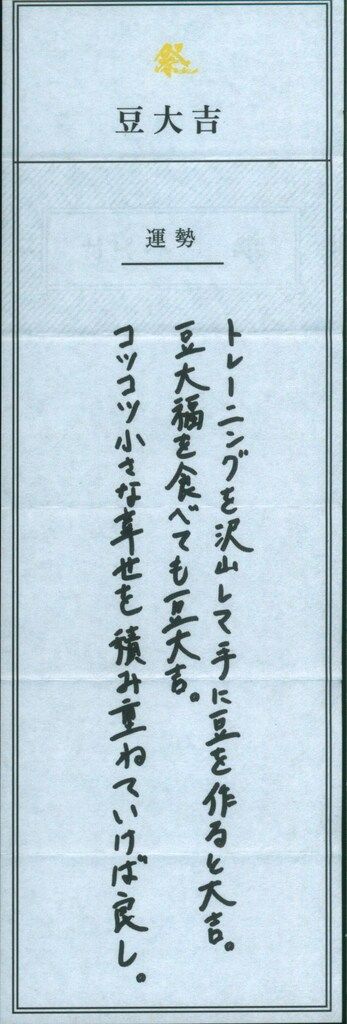 祭
豆大吉
運勢
トレーニングを沢山して手に豆を作ると大吉。
豆大福を食べても豆大吉。
コツコツ小さな幸せを積み重ねていけば良し。